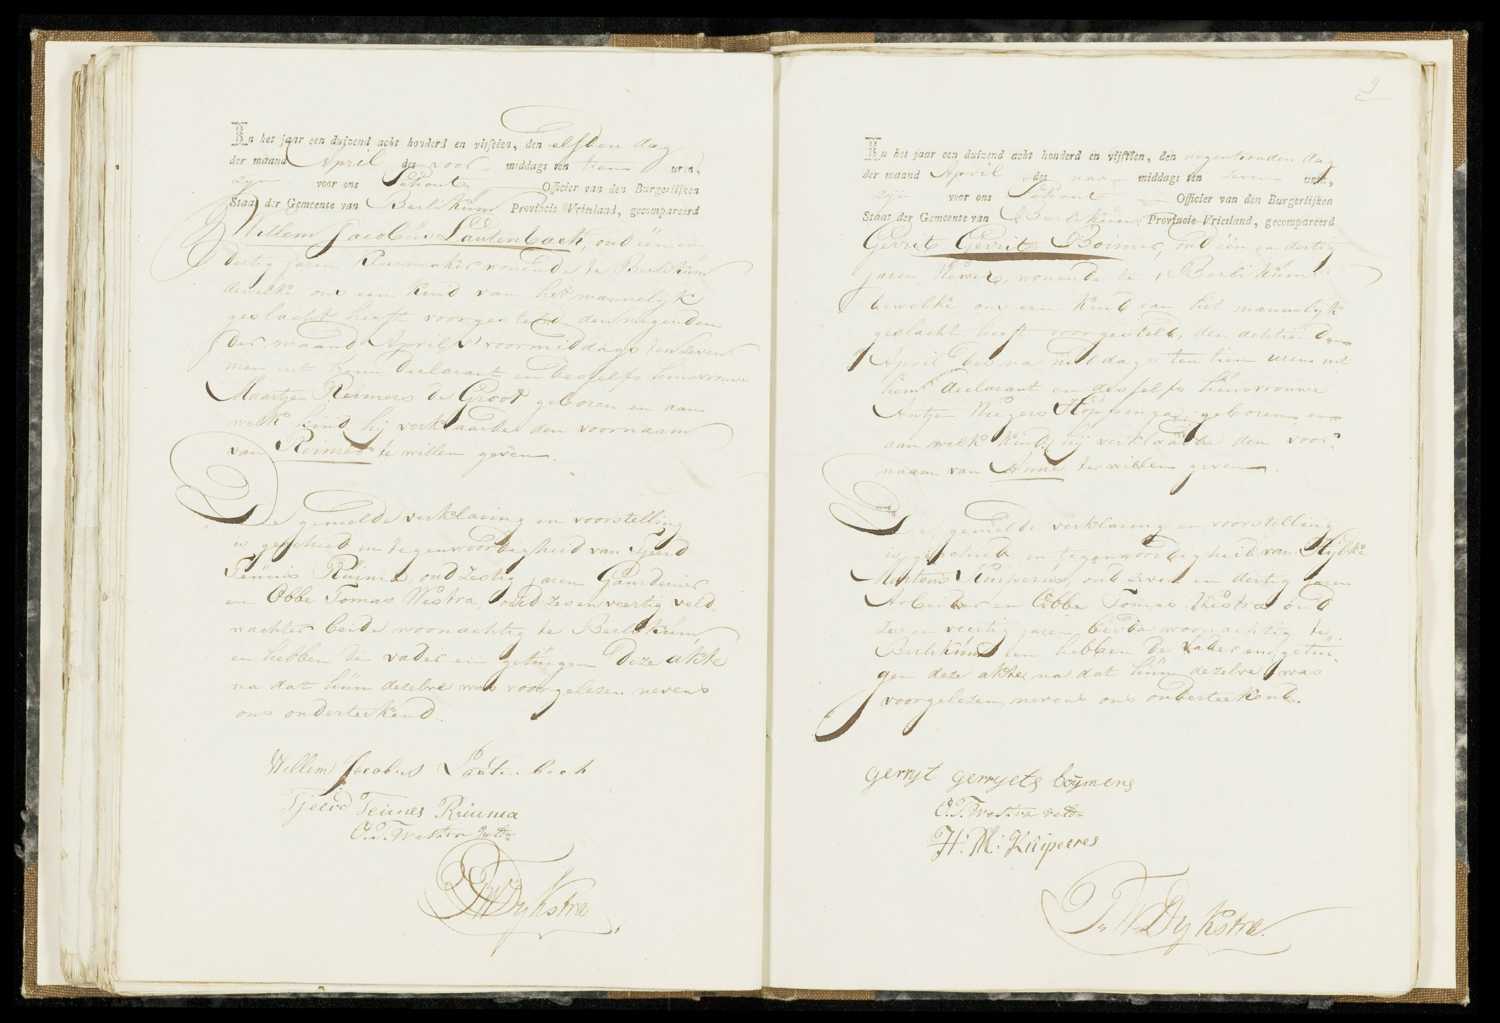 In het jaar een duizend acht honderd en vijftien, den elfden dag
der maand April des voor middags ten tien uren,
zijn voor ons Schout Officier van den Burgerlijken
Staat der Gemeente van Berlikum Provincie Vriesland, gecompareerd
Willem Jacobus Lautenbach, oud een en
dertig jaren wonende te Berlikum
dewelke ons een kind van het mannelijk
geslacht heeft voorgesteld, den negenden
der maand April voormiddags ten zeven
uren uit hem declarant en desselfs huisvrouw
Maartje Reimers de Groot geboren en aan
welk kind hij verklaarde den voornaam
van Reimer te willen geven.
De gemelde verklaring en voorstelling
is geschied in tegenwoordigheid van Tjeerd
Teunis Ruinia oud zestig jaren Gardenier
en Obbe Tomas Westra, oud zes en veertig veld
wachter beide woonachtig te Berlikum,
en hebben de vader en getuigen deze akte
na dat hun dezelve was voorgelezen nevens
ons onderteekend.
Willem Jacobus Lautenbach
Tjeerd Teunes Ruinia
O. T. Westra
Dykstra
9
In het jaar een duizend acht honderd en vijftien, den negentienden dag
der maand April des na middags ten zeven uren,
zijn voor ons Schout Officier van den Burgerlijken
Staat der Gemeente van Berlikum Provincie Vriesland, gecompareerd
Gerrit Gerrits Boimer, oud een en dertig
jaren wonende te Berlikum
dewelke ons een kind van het mannelijk
geslacht heeft voorgesteld, den achttienden
April des na middags ten tien uren uit
hem declarant en desselfs huisvrouwe
Antje geboren en
aan welk kind hij verklaarde den voor
naam van Anne te willen geven.
De gemelde verklaring en voorstelling
is geschied in tegenwoordigheid van Hijlke
Martens Kuiperus, oud zeven en dertig jaren
Arbeider en Obbe Tomas Westra oud
zes en veertig jaren beide woonachtig te
Berlikum en hebben de vader en getui
gen deze akte, na dat hun dezelve was
voorgelezen, nevens ons onderteekend.
gerryt gerryets boymens
O. T. Westra
H: M: Kuiperes
T. W. Dykstra.